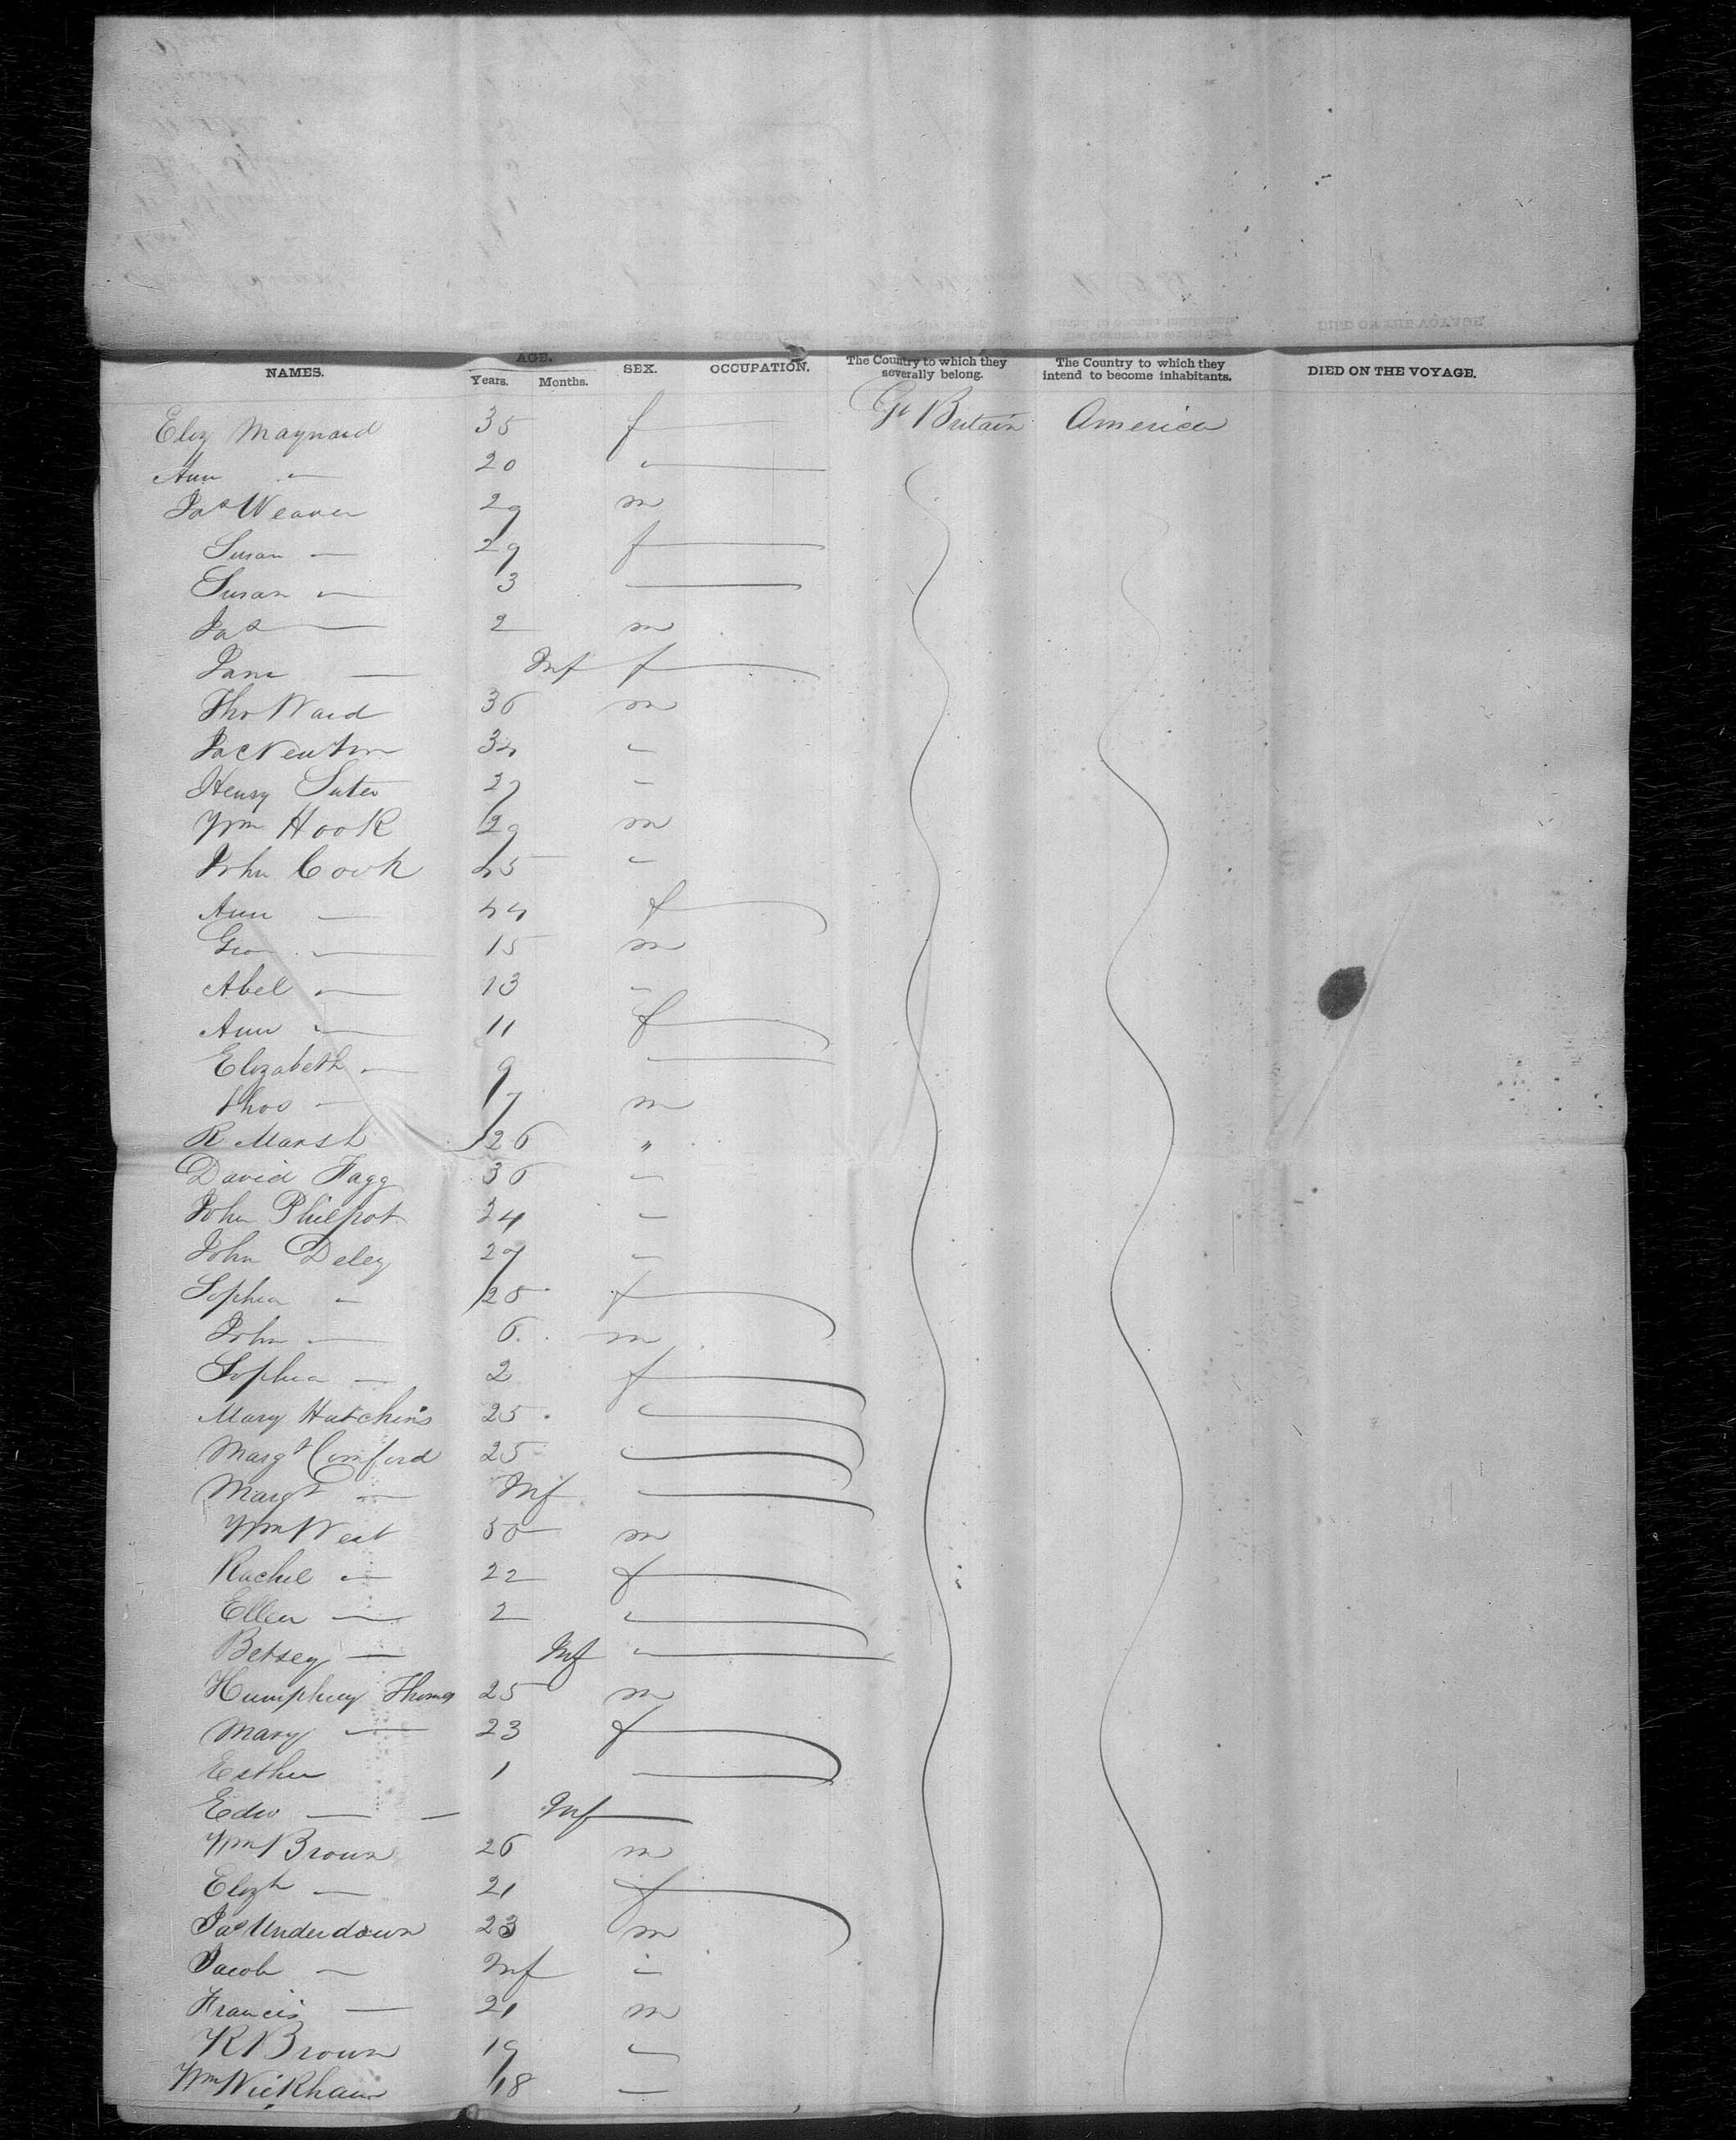 NAMES. AGE. Years. Months. SEX. OCCUPATION. The Country to which they severally belong. The Country to which they intend to become inhabitants. DIED ON THE VOYAGE.
Eliz Maynard 35 f Gt Britain America
Ann " 20 "
Jas Weaver 29 m
Susan — 29 f
Susan " 3 —
Jas — 2 m
Jane — Inf f
Tho Ward 36 m
Jas Newton 34 "
Henry Suter 27 "
Wm Hook 29 m
John Cook 45 "
Ann — 44 f
Geo — 15 m
Abel " 13 "
Ann " 11 f
Elizabeth " 9 —
Thos — 7 m
R Marsh 26 "
David Fagg 36 "
John Philpot 24 "
John Deley 27 "
Sophia " 25 f
John — 6 m
Sophia — 2 f
Mary Hutchins 25 "
Margt Comford 25 "
Margt — Inf "
Wm West 30 m
Rachel " 22 f
Ellen — 2 "
Betsey — Inf "
Humphrey Thomas 25 m
Mary — 23 f
Esther 1 —
Edw — — Inf —
Wm Brown 26 m
Elizth — 21 f
Jas Underdown 23 m
Jacob — Inf "
Francis — 21 m
R Brown 19 "
Wm Wickham 18 —